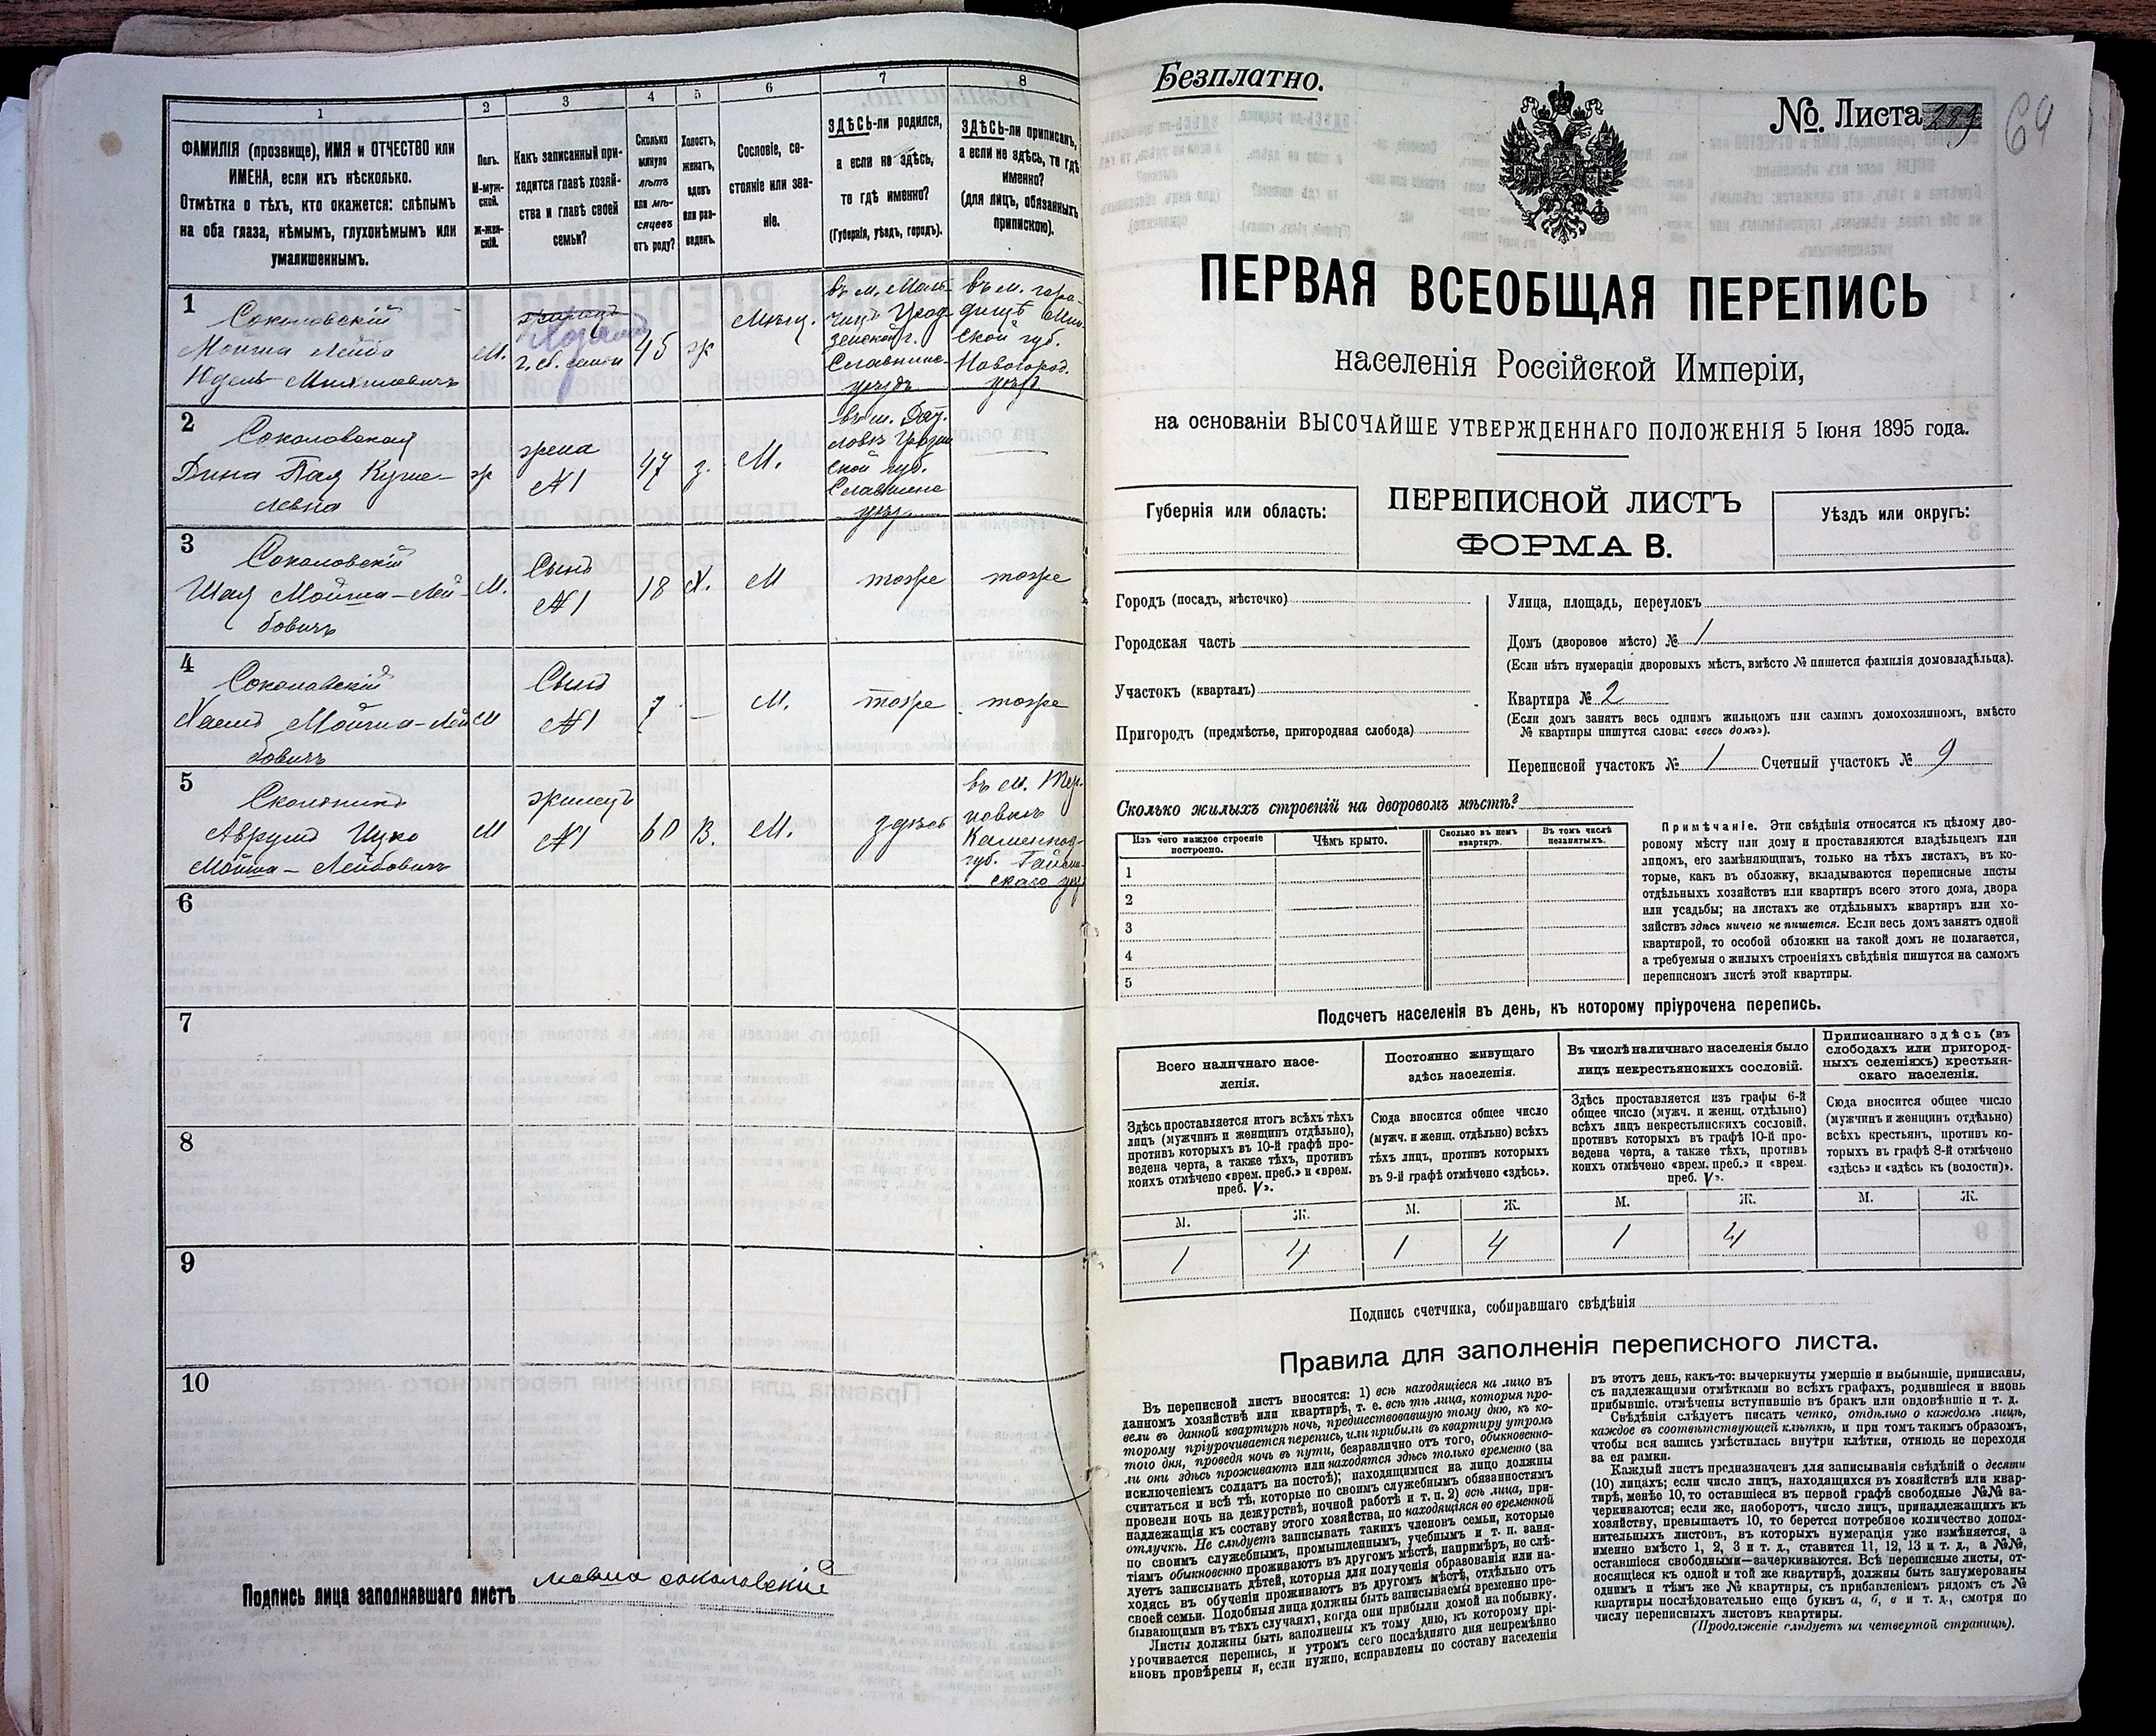 1
2
3
4
5
6
7
8
ФАМИЛІЯ (прозвище), ИМЯ и ОТЧЕСТВО или
ИМЕНА, если ихъ нѣсколько.
Отмѣтка о тѣхъ, кто окажется: слѣпымъ
на оба глаза, нѣмымъ, глухонѣмымъ или
умалишеннымъ.
Полъ.
М-муж-
ской.
Ж-жен-
скій.
Какъ записанный при-
ходится главѣ хозяй-
ства и главѣ своей
семьи?
Сколько
минуло
лѣтъ
или мѣ-
сяцевъ
отъ роду?
Холостъ,
женатъ,
вдовъ
или раз-
веденъ.
Сословіе, со-
стояніе или зва-
ніе.
ЗДѢСЬ-ли родился,
а если не здѣсь,
то гдѣ именно?
(Губернія, уѣздъ, городъ).
ЗДѢСЬ-ли приписанъ,
а если не здѣсь, то гдѣ
именно?
(для лицъ, обязанныхъ
припискою).
1
Соколовскій
Мойша Лейба
М.
г. св. семьи
45
ж
Мѣщ.
уѣздъ
въ м. Горо-
ской губ.
Новогород.
2
Соколовская
Дина Пая Куше-
левна
ж
жена
№ 1
47
з.
М.
ской губ.
3
Соколовскій
Шая Мойша-Лей-
бовичъ
М.
Сынъ
№ 1
18
Х.
М
тоже
тоже
4
Соколовскій
Мойша-Лей
бовичъ
М
Сынъ
№ 1
7
—
М.
тоже
тоже
5
Аврумъ Ицко
Мойша-Лейбовичъ
М
жилецъ
№ 1
60
В.
М.
здѣсь
въ м. Тер-
новкѣ
губ.
скаго
6
7
8
9
10
Подпись лица заполнявшаго листъ Мовша Соколовскій
Безплатно.
№. Листа 289
64
ПЕРВАЯ ВСЕОБЩАЯ ПЕРЕПИСЬ
населенія Россійской Имперіи,
на основаніи ВЫСОЧАЙШЕ УТВЕРЖДЕННАГО ПОЛОЖЕНІЯ 5 Іюня 1895 года.
Губернія или область:
ПЕРЕПИСНОЙ ЛИСТЪ
ФОРМА В.
Уѣздъ или округъ:
Городъ (посадъ, мѣстечко)
Городская часть
Участокъ (кварталъ)
Пригородъ (предмѣстье, пригородная слобода)
Улица, площадь, переулокъ
Домъ (дворовое мѣсто) № 1
(Если нѣтъ нумераціи дворовыхъ мѣстъ, вмѣсто № пишется фамилія домовладѣльца).
Квартира № 2
(Если домъ занятъ весь однимъ жильцомъ или самимъ домохозяиномъ, вмѣсто
№ квартиры пишутся слова: «весь домъ»).
Переписной участокъ № 1 Счетный участокъ № 9
Сколько жилыхъ строеній на дворовомъ мѣстѣ?
Изъ чего каждое строеніе
построено.
Чѣмъ крыто.
Сколько въ немъ
квартиръ.
Въ томъ числѣ
незанятыхъ.
1
2
3
4
5
Примѣчаніе. Эти свѣдѣнія относятся къ цѣлому дво-
ровому мѣсту или дому и проставляются владѣльцемъ или
лицомъ, его замѣняющимъ, только на тѣхъ листахъ, въ ко-
торые, какъ въ обложку, вкладываются переписные листы
отдѣльныхъ хозяйствъ или квартиръ всего этого дома, двора
или усадьбы; на листахъ же отдѣльныхъ квартиръ или хо-
зяйствъ здѣсь ничего не пишется. Если весь домъ занятъ одной
квартирой, то особой обложки на такой домъ не полагается,
а требуемыя о жилыхъ строеніяхъ свѣдѣнія пишутся на самомъ
переписномъ листѣ этой квартиры.
Подсчетъ населенія въ день, къ которому пріурочена перепись.
Всего наличнаго насе-
ленія.
Постоянно живущаго
здѣсь населенія.
Въ числѣ наличнаго населенія было
лицъ некрестьянскихъ сословій.
Приписаннаго здѣсь (въ
слободахъ или пригород-
ныхъ селеніяхъ) крестьян-
скаго населенія.
Здѣсь проставляется итогъ всѣхъ тѣхъ
лицъ (мужчинъ и женщинъ отдѣльно),
противъ которыхъ въ 10-й графѣ про-
ведена черта, а также тѣхъ, противъ
коихъ отмѣчено «врем. преб.» и «врем.
преб. V».
Сюда вносится общее число
(мужч. и женщ. отдѣльно) всѣхъ
тѣхъ лицъ, противъ которыхъ
въ 9-й графѣ отмѣчено «здѣсь».
Здѣсь проставляется изъ графы 6-й
общее число (мужч. и женщ. отдѣльно)
всѣхъ лицъ некрестьянскихъ сословій,
противъ которыхъ въ графѣ 10-й про-
ведена черта, а также тѣхъ, противъ
коихъ отмѣчено «врем. преб.» и «врем.
преб. V».
Сюда вносится общее число
(мужчинъ и женщинъ отдѣльно)
всѣхъ крестьянъ, противъ ко-
торыхъ въ графѣ 8-й отмѣчено
«здѣсь» и «здѣсь къ (волости)».
М. Ж. М. Ж. М. Ж. М. Ж.
1 4 1 4 1 4
Подпись счетчика, собиравшаго свѣдѣнія
Правила для заполненія переписного листа.
Въ переписной листъ вносятся: 1) всѣ находящіеся на лицо въ
данномъ хозяйствѣ или квартирѣ, т. е. всѣ тѣ лица, которыя про-
вели въ данной квартирѣ ночь, предшествовавшую тому дню, къ ко-
торому пріурочивается перепись, или прибыли въ квартиру утромъ
того дня, проведя ночь въ пути, безразлично отъ того, обыкновенно-
ли они здѣсь проживаютъ или находятся здѣсь только временно (за
исключеніемъ солдатъ на постоѣ); находящимися на лицо должны
считаться и всѣ тѣ, которые по своимъ служебнымъ обязанностямъ
провели ночь на дежурствѣ, ночной работѣ и т. п. 2) всѣ лица, при-
надлежащія къ составу этого хозяйства, но находящіяся во временной
отлучкѣ. Не слѣдуетъ записывать такихъ членовъ семьи, которые
по своимъ служебнымъ, промышленнымъ, учебнымъ и т. п. заня-
тіямъ обыкновенно проживаютъ въ другомъ мѣстѣ, напримѣръ, не слѣ-
дуетъ записывать дѣтей, которыя для полученія образованія или на-
ходясь въ обученіи проживаютъ въ другомъ мѣстѣ, отдѣльно отъ
своей семьи. Подобныя лица должны быть записываемы временно пре-
бывающими въ тѣхъ случаяхъ, когда они прибыли домой на побывку.
Листы должны быть заполнены къ тому дню, къ которому прі-
урочивается перепись, и утромъ сего послѣдняго дня непремѣнно
вновь провѣрены и, если нужно, исправлены по составу населенія
въ этотъ день, какъ-то: вычеркнуты умершіе и выбывшіе, приписаны,
съ надлежащими отмѣтками во всѣхъ графахъ, родившіеся и вновь
прибывшіе, отмѣчены вступившіе въ бракъ или овдовѣвшіе и т. д.
Свѣдѣнія слѣдуетъ писать четко, отдѣльно о каждомъ лицѣ,
каждое въ соотвѣтствующей клѣткѣ, и при томъ такимъ образомъ,
чтобы вся запись умѣстилась внутри клѣтки, отнюдь не переходя
за ея рамки.
Каждый листъ предназначенъ для записыванія свѣдѣній о десяти
(10) лицахъ; если число лицъ, находящихся въ хозяйствѣ или квар-
тирѣ, менѣе 10, то оставшіеся въ первой графѣ свободные №№ за-
черкиваются; если же, наоборотъ, число лицъ, принадлежащихъ къ
хозяйству, превышаетъ 10, то берется потребное количество допол-
нительныхъ листовъ, въ которыхъ нумерація уже измѣняется, а
именно вмѣсто 1, 2, 3 и т. д., ставится 11, 12, 13 и т. д., а №№,
оставшіеся свободными—зачеркиваются. Всѣ переписные листы, от-
носящіеся къ одной и той же квартирѣ, должны быть занумерованы
однимъ и тѣмъ же № квартиры, съ прибавленіемъ рядомъ съ №
квартиры послѣдовательно еще буквъ а, б, в и т. д., смотря по
числу переписныхъ листовъ квартиры.
(Продолженіе слѣдуетъ на четвертой страницѣ).